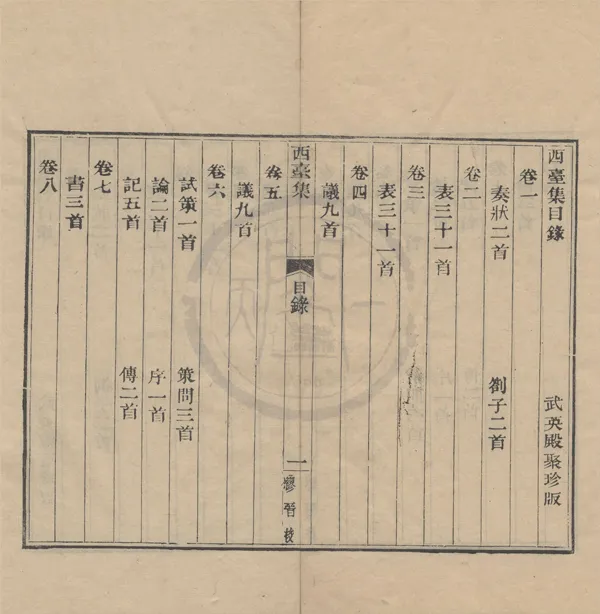 西臺集目錄 武英殿聚珍版
卷一
奏狀二首 劄子二首
卷二
表三十一首
卷三
表三十一首
卷四
議九首
西臺集 目錄 一 繆晉校
卷五
議九首
卷六
試策一首 策問三首
論二首 序一首
記五首 傳二首
卷七
書三首
卷八